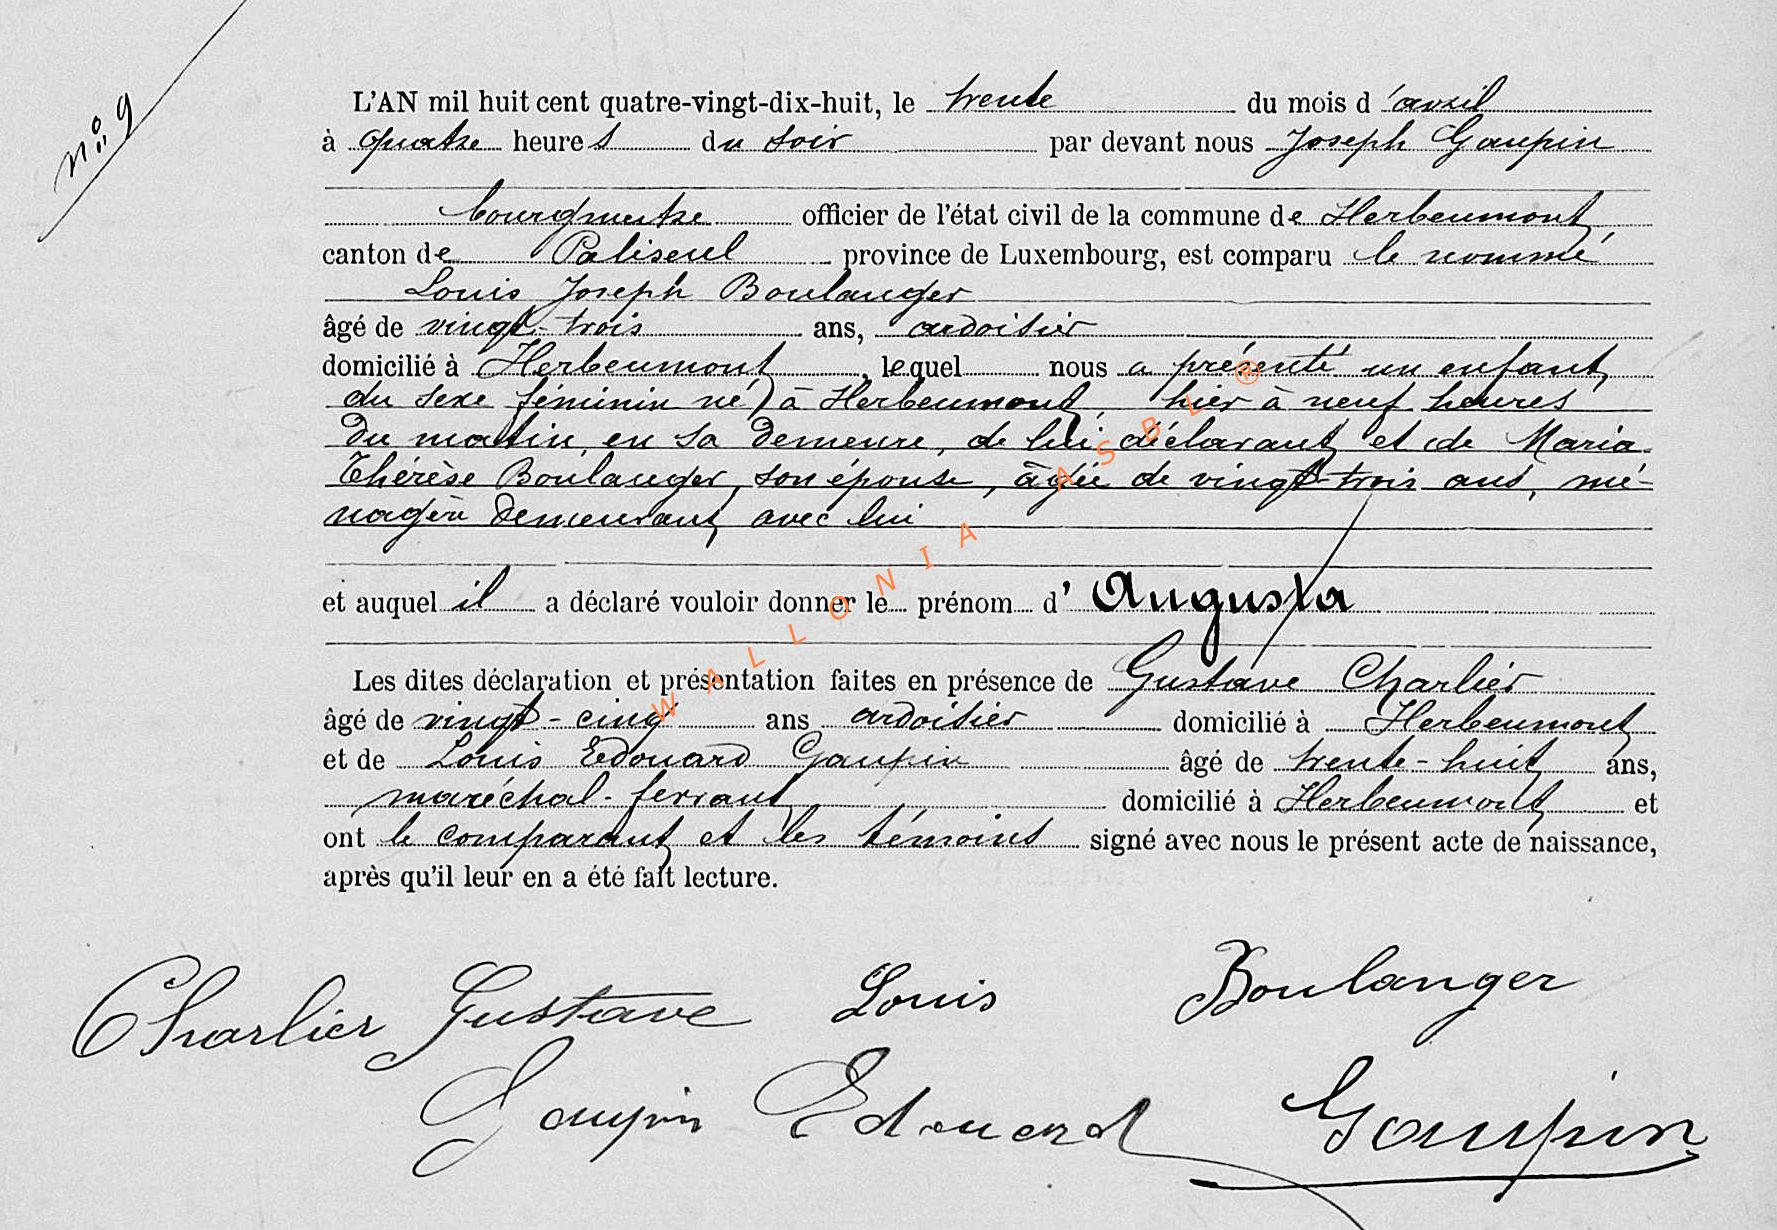 n° 9
L'AN mil huit cent quatre-vingt-dix-huit, le trente du mois d'avril
à quatre heures du soir par devant nous Joseph Gaupin
bourgmestre officier de l'état civil de la commune de Herbeumont
canton de Paliseul province de Luxembourg, est comparu le nommé
Louis Joseph Boulanger
âgé de vingt-trois ans, ardoisier
domicilié à Herbeumont, lequel nous a présenté un enfant
du sexe féminin né à Herbeumont, hier à neuf heures
du matin, en sa demeure, de lui déclarant et de Maria
Thérèse Boulanger, son épouse, âgée de vingt-trois ans, mé-
nagère demeurant avec lui
et auquel il a déclaré vouloir donner le prénom d'Augusta
Les dites déclaration et présentation faites en présence de Gustave Charlier
âgé de vingt-cinq ans ardoisier domicilié à Herbeumont
et de Louis Edouard Gaupin âgé de trente-huit ans,
maréchal-ferrant domicilié à Herbeumont et
ont le comparant et les témoins signé avec nous le présent acte de naissance,
après qu'il leur en a été fait lecture.
Charlier Gustave Louis Boulanger
Gaupin Edouard Gaupin
WALLONIA ASBL ®